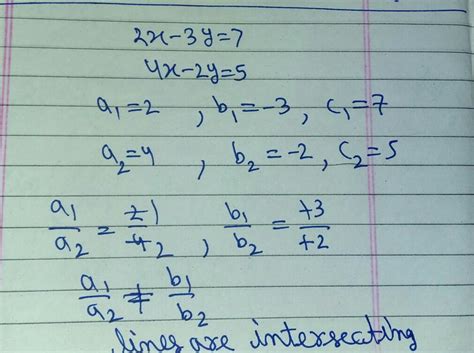 2x-3y=7
4x-2y=5
a₁=2 , b₁=-3 , c₁=7
a₂=4 , b₂=-2 , c₂=5
a₁/a₂ = 2̶1/4̶2 , b₁/b₂ = +3/+2
a₁/a₂ ≠ b₁/b₂
lines are intersecting